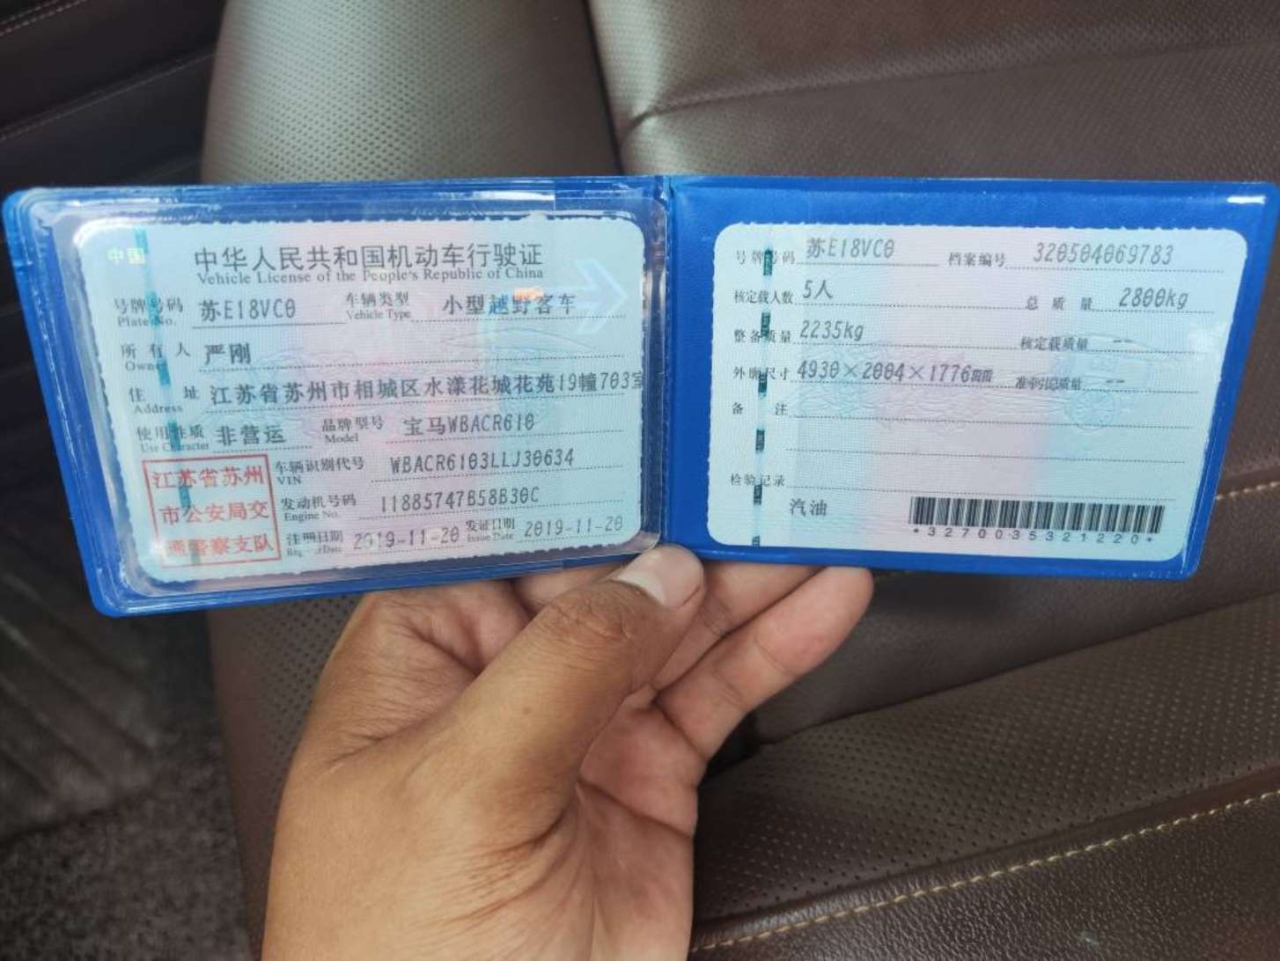 中华人民共和国机动车行驶证
Vehicle License of the People's Republic of China
号牌号码 苏E18VC0 车辆类型 小型越野客车
Plate No. Vehicle Type
所有人 严刚
Owner
住址 江苏省苏州市相城区水漾花城花苑19幢703室
Address
使用性质 非营运 品牌型号 宝马WBACR610
Use Character Model
江苏省苏州
市公安局交
通警察支队
车辆识别代号 WBACR6103LLJ30634
VIN
发动机号码 11885747B58B30C
Engine No.
注册日期 2019-11-20 发证日期 2019-11-20
Issue Date
号牌号码 苏E18VC0 档案编号 320504069783
核定载人数 5人 总质量 2800kg
整备质量 2235kg 核定载质量 --
外廓尺寸 4930×2004×1776 准牵引总质量 --
备注
检验记录
汽油
*3270035321220*